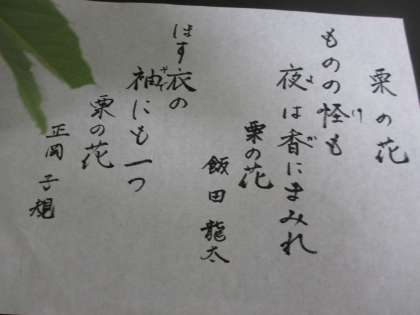 栗の花
ものの怪も
け
夜は香にまみれ
よ
か
栗の花
飯田龍太
はす衣の
袖にも一つ
そで
栗の花
正岡子規